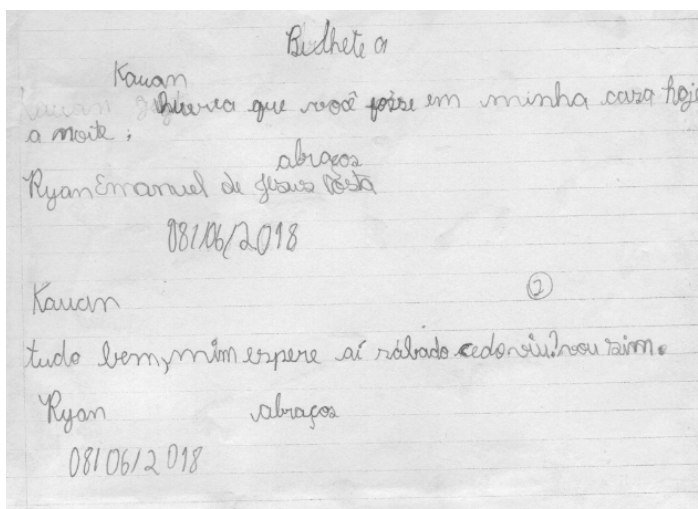 Bilhete a
Kauan
queria que você fosse em minha casa hoje
a noite ;
abraços
Ryan Emanuel de Jesus Costa
08/06/2018
2
Kauan
tudo bem, mim espere aí sábado cedo viu? vou sim.
Ryan abraços
08/06/2018